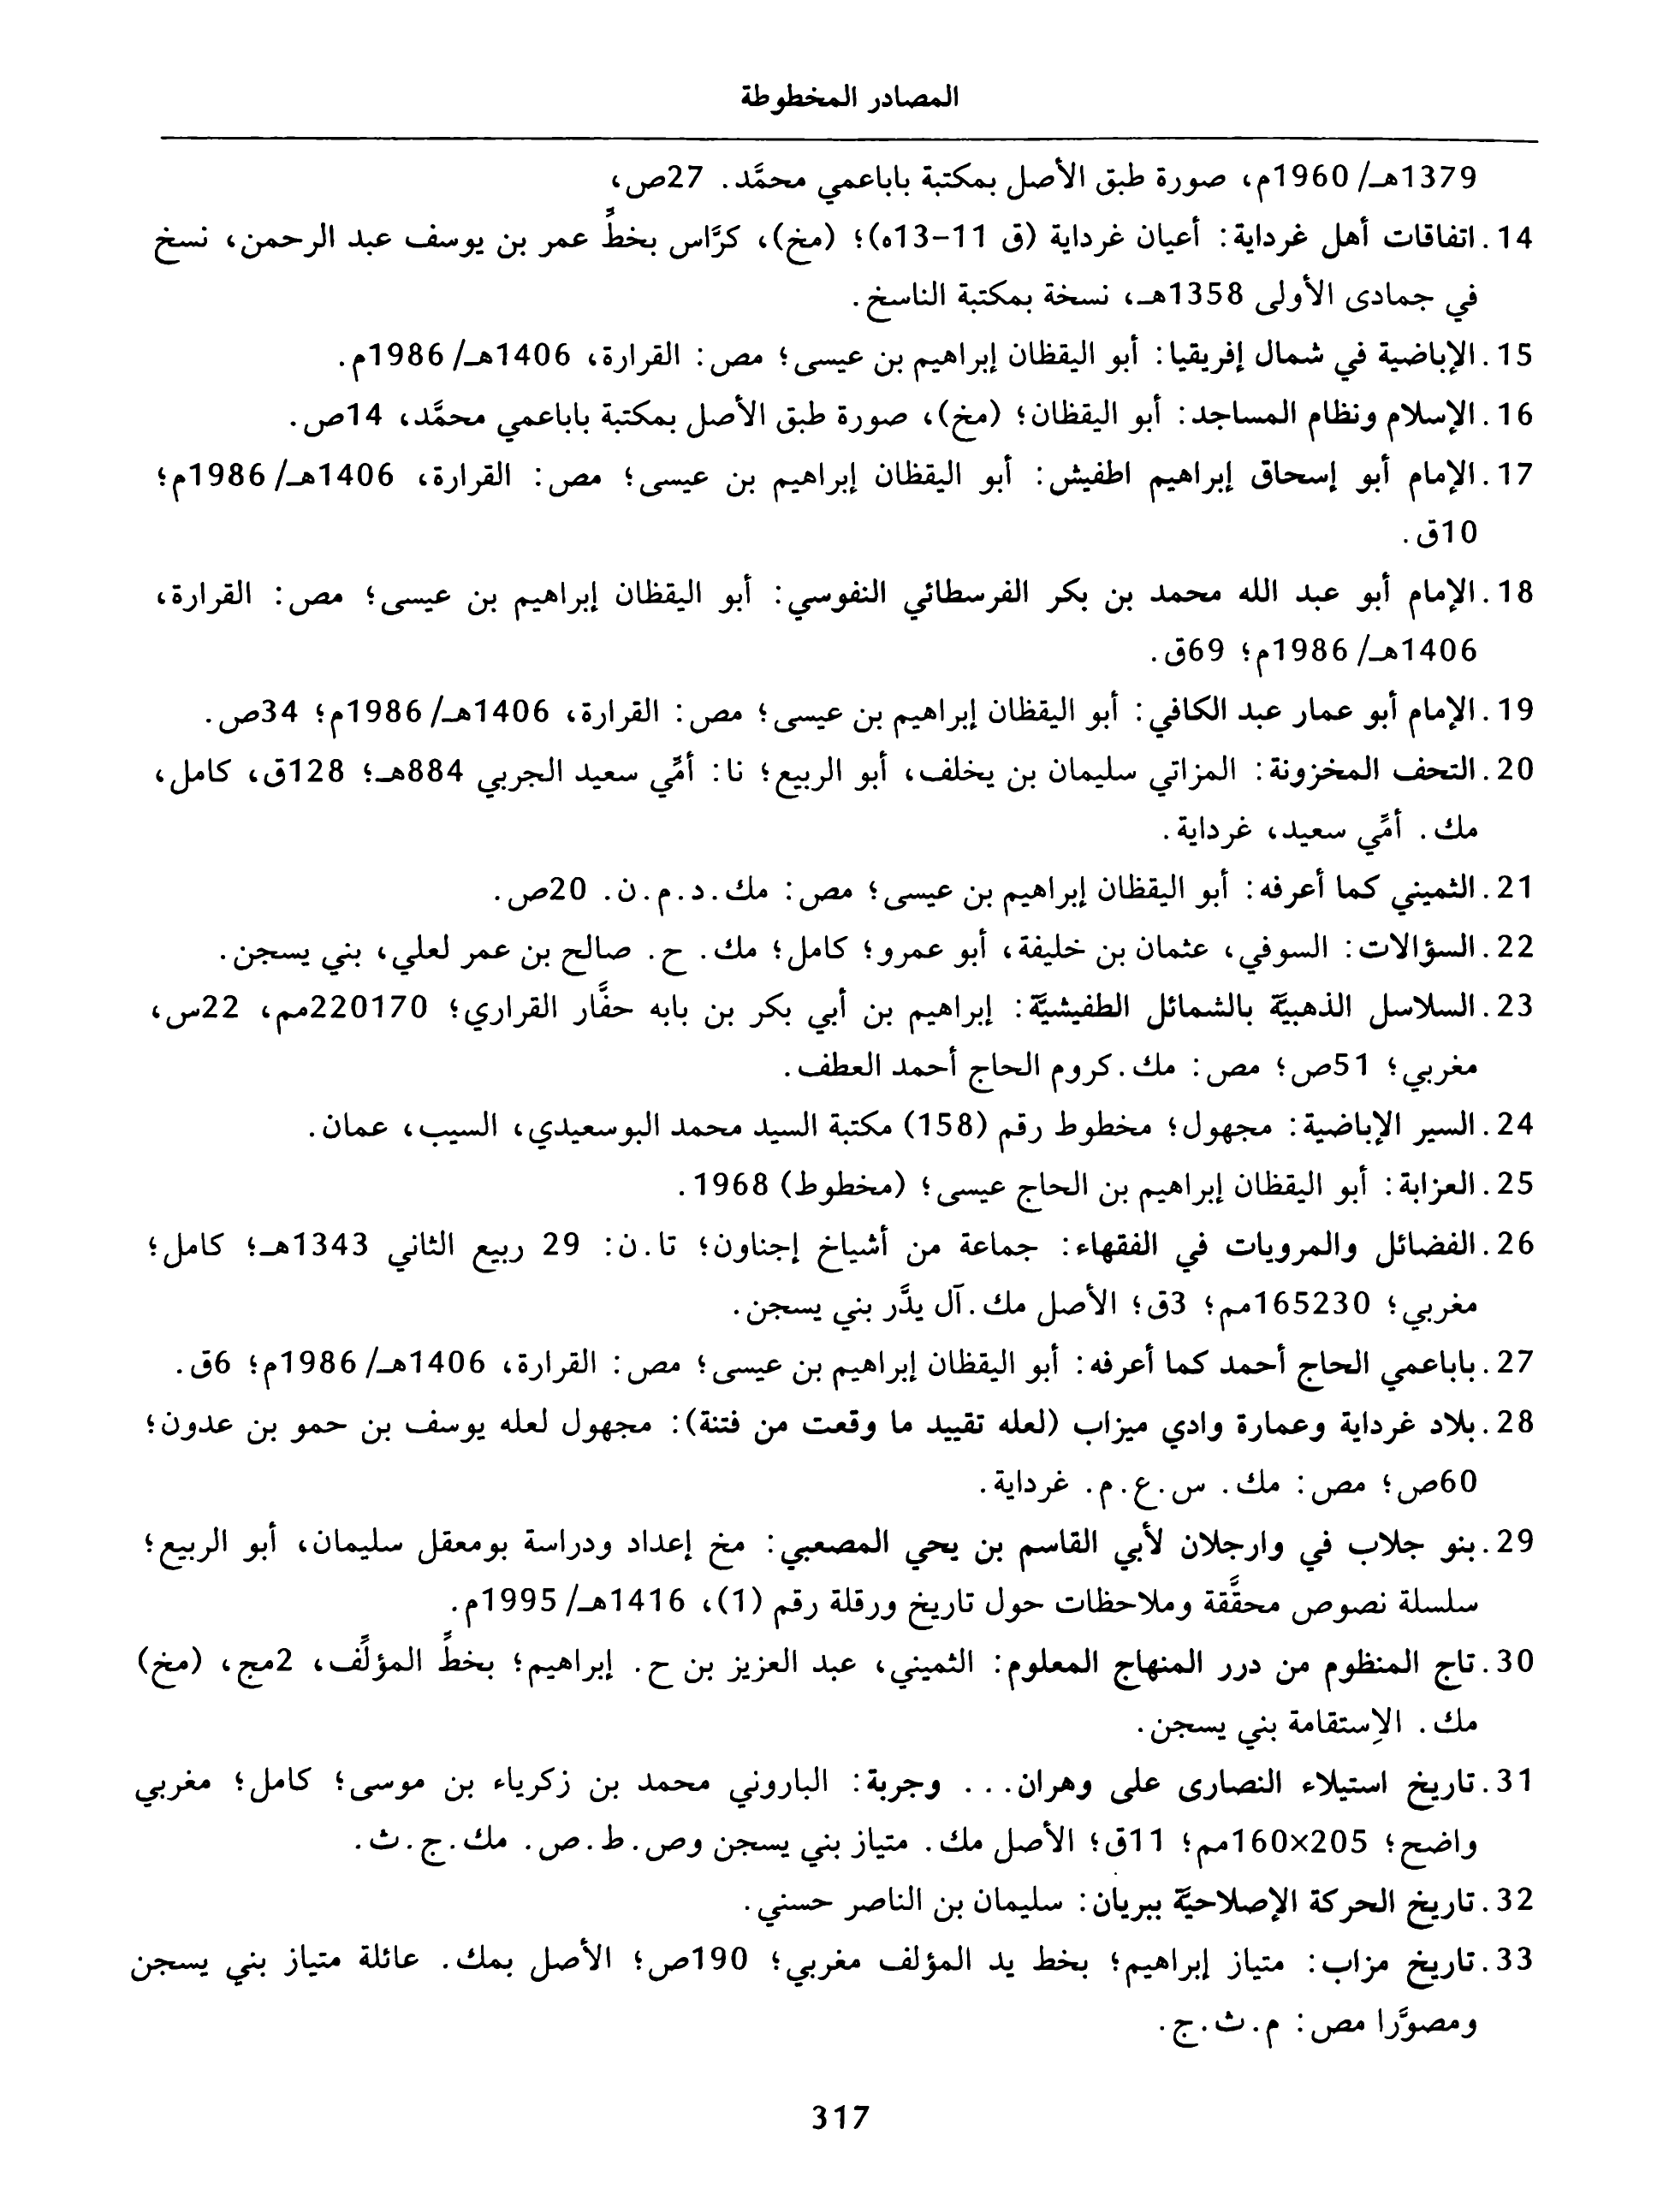 المصادر المخطوطة
1379هـ/ 1960م، صورة طبق الأصل بمكتبة باباعمي محمَّد. 27ص،
14. اتفاقات أهل غرداية: أعيان غرداية (ق 11-13ه)؛ (مخ)، كرَّاس بخطِّ عمر بن يوسف عبد الرحمن، نسخ
في جمادى الأولى 1358هـ، نسخة بمكتبة الناسخ.
15. الإباضية في شمال إفريقيا: أبو اليقظان إبراهيم بن عيسى؛ مص: القرارة، 1406هـ/ 1986م.
16. الإسلام ونظام المساجد: أبو اليقظان؛ (مخ)، صورة طبق الأصل بمكتبة باباعمي محمَّد، 14ص.
17. الإمام أبو إسحاق إبراهيم اطفيش: أبو اليقظان إبراهيم بن عيسى؛ مص: القرارة، 1406هـ/ 1986م؛
10ق.
18. الإمام أبو عبد الله محمد بن بكر الفرسطائي النفوسي: أبو اليقظان إبراهيم بن عيسى؛ مص: القرارة،
1406هـ/ 1986م؛ 69ق.
19. الإمام أبو عمار عبد الكافي: أبو اليقظان إبراهيم بن عيسى؛ مص: القرارة، 1406هـ/ 1986م؛ 34ص.
20. التحف المخزونة: المزاتي سليمان بن يخلف، أبو الربيع؛ نا: أمِّي سعيد الجربي 884هـ؛ 128ق، كامل،
مك. أمِّي سعيد، غرداية.
21. الثميني كما أعرفه: أبو اليقظان إبراهيم بن عيسى؛ مص: مك.د.م.ن. 20ص.
22. السؤالات: السوفي، عثمان بن خليفة، أبو عمرو؛ كامل؛ مك. ح. صالح بن عمر لعلي، بني يسجن.
23. السلاسل الذهبيَّة بالشمائل الطفيشيَّة: إبراهيم بن أبي بكر بن بابه حفَّار القراري؛ 220170مم، 22س،
مغربي؛ 51ص؛ مص: مك.كروم الحاج أحمد العطف.
24. السير الإباضية: مجهول؛ مخطوط رقم (158) مكتبة السيد محمد البوسعيدي، السيب، عمان.
25. العزابة: أبو اليقظان إبراهيم بن الحاج عيسى؛ (مخطوط) 1968.
26. الفضائل والمرويات في الفقهاء: جماعة من أشياخ إجناون؛ تا.ن: 29 ربيع الثاني 1343هـ؛ كامل؛
مغربي؛ 165230مم؛ 3ق؛ الأصل مك.آل يدَّر بني يسجن.
27. باباعمي الحاج أحمد كما أعرفه: أبو اليقظان إبراهيم بن عيسى؛ مص: القرارة، 1406هـ/ 1986م؛ 6ق.
28. بلاد غرداية وعمارة وادي ميزاب (لعله تقييد ما وقعت من فتنة): مجهول لعله يوسف بن حمو بن عدون؛
60ص؛ مص: مك. س.ع.م. غرداية.
29. بنو جلاب في وارجلان لأبي القاسم بن يحي المصعبي: مخ إعداد ودراسة بومعقل سليمان، أبو الربيع؛
سلسلة نصوص محقَّقة وملاحظات حول تاريخ ورقلة رقم (1)، 1416هـ/ 1995م.
30. تاج المنظوم من درر المنهاج المعلوم: الثميني، عبد العزيز بن ح. إبراهيم؛ بخطِّ المؤلِّف، 2مج، (مخ)
مك. الإستقامة بني يسجن.
31. تاريخ استيلاء النصارى على وهران... وجربة: الباروني محمد بن زكرياء بن موسى؛ كامل؛ مغربي
واضح؛ 205×160مم؛ 11ق؛ الأصل مك. متياز بني يسجن وص.ط.ص. مك.ج.ث.
32. تاريخ الحركة الإصلاحيَّة ببريان: سليمان بن الناصر حسني.
33. تاريخ مزاب: متياز إبراهيم؛ بخط يد المؤلف مغربي؛ 190ص؛ الأصل بمك. عائلة متياز بني يسجن
ومصوَّرا مص: م.ث.ج.
317